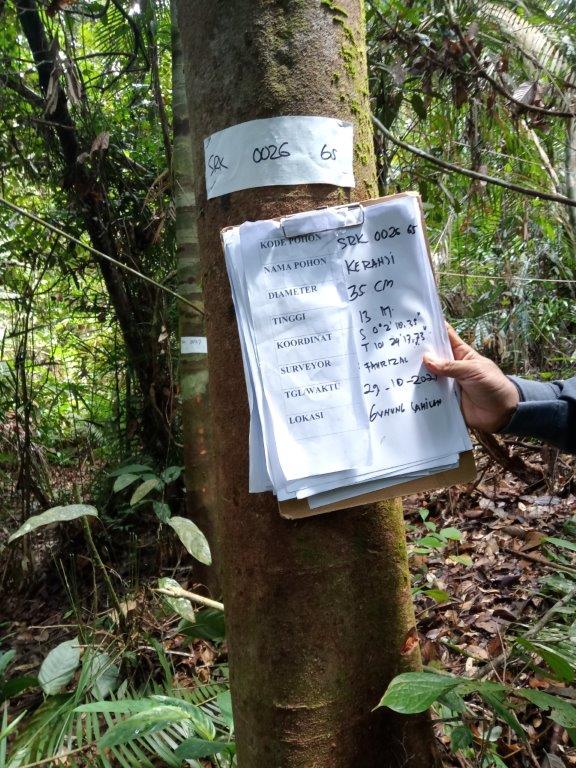 SRK 0026 65
KODE POHON SRK 0026 65
NAMA POHON KERANJI
DIAMETER 35 CM
TINGGI 13 M.
KOORDINAT S 0°2'10.35"
T 101°29'13,73"
SURVEYOR : FAHRIZAL
TGL/WAKTU 29-10-202
LOKASI GUNUNG SAHILAN